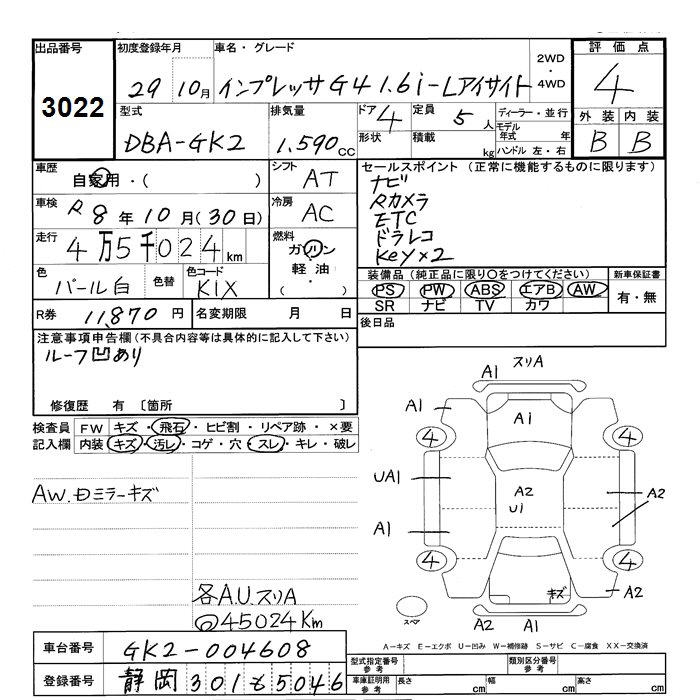 出品番号 初度登録年月 車名・グレード 2WD・4WD 評価点
3022 29 10月 インプレッサG4 1.6i-Lアイサイト 4
型式 排気量 ドア 4 定員 5人 ディーラー・並行 外装 内装
DBA-GK2 1.590cc 形状 積載 kg モデル年式 年 B B
ハンドル 左・右
車歴 自家用・( ) シフト AT セールスポイント (正常に機能するものに限ります)
車検 R8年10月(30日) 冷房 AC ナビ
Rカメラ
ETC
ドラレコ
Key×2
走行 4万5千024km 燃料 ガソリン・軽油・( )
色 パール白 色替 色コード K1X
装備品(純正品に限り○をつけてください) 新車保証書
PS PW ABS エアB AW 有・無
SR ナビ TV カワ
R券 11,870円 名変期限 月 日 後日品
注意事項申告欄(不具合内容等は具体的に記入して下さい)
ルーフ凹あり
修復歴 有 〔箇所 〕
検査員 FW キズ・飛石・ヒビ割・リペア跡・×要
記入欄 内装 キズ・汚レ・コゲ・穴・スレ・キレ・破レ
AW.Dミラーキズ
各A.U.スリA
45024Km
スリA
A1
A1 A1
4 4
UA1 A2 A2
U1
A1
4 4
キズ A2
スペア A2 A1
A-キズ E-エクボ U-凹み W-補修跡 S-サビ C-腐食 XX-交換済
車台番号 GK2-004608
型式指定番号 参考 類別区分番号 参考
登録番号 静岡 301 も 5046
車庫証明用 参考 長さ cm 幅 cm 高さ cm